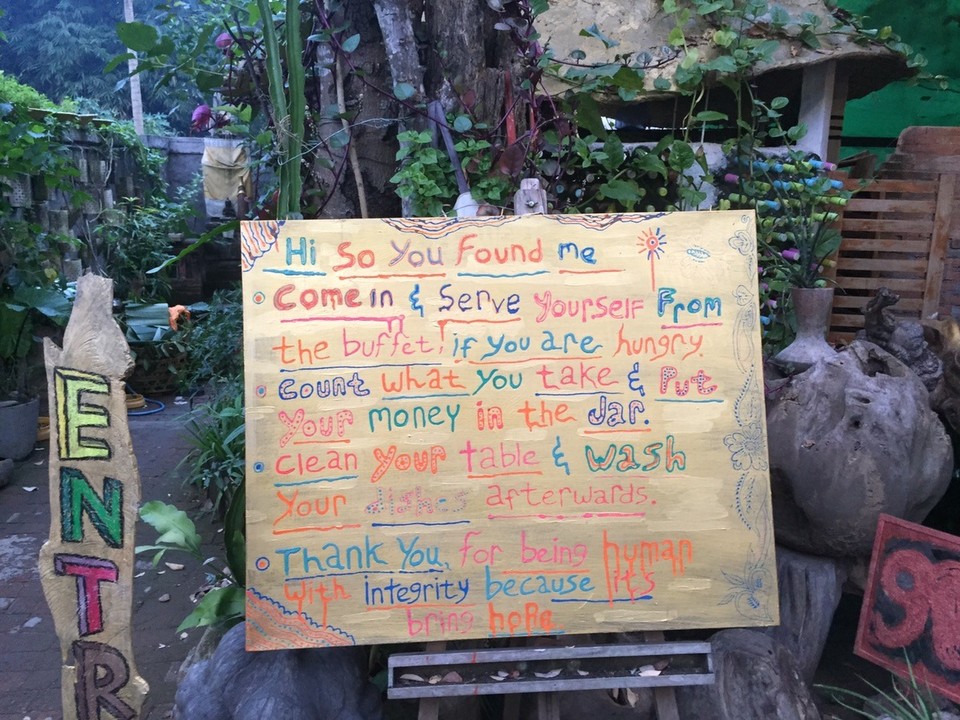 Hi So You Found me
Come in & Serve Yourself From
the buffet! if you are hungry.
Count what you take & Put
Your money in the Jar.
Clean Your table & Wash
Your dishes afterwards.
Thank You, for being human
with integrity because it's
bring hope
ENTR